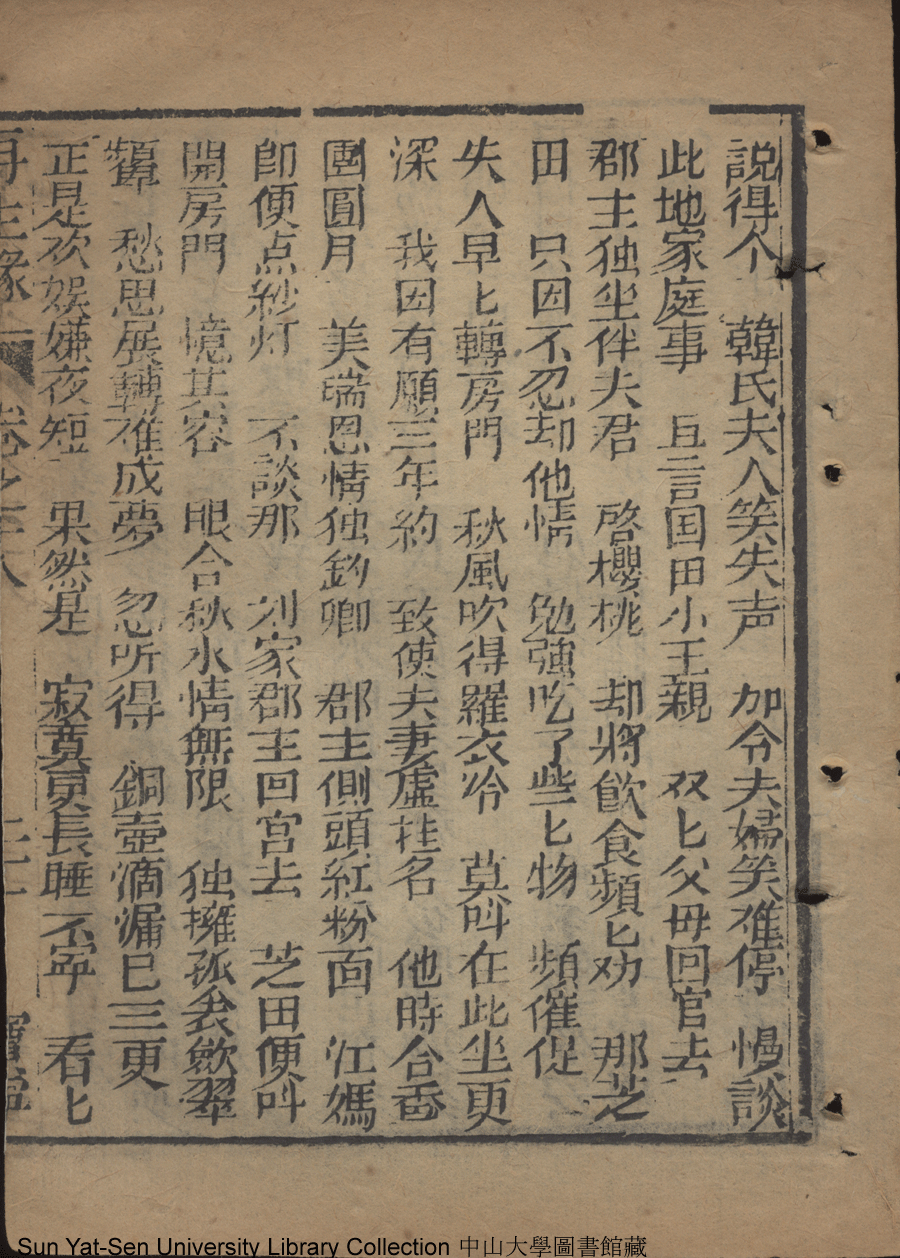 説得个　韓氏夫人笑失声　加令夫婦笑难停　慢談
此地家庭事　且言国田小王親　双匕父毋回官去
郡主独坐伴夫君　啓櫻桃　却將飲食頻匕劝　那芝
田　只因不忍却他情　勉強吃了些匕物　頻催促
失人早匕轉房門　秋風吹得羅衣冷　莫呌在此坐更
深　我因有願三年約　致使夫妻虛挂名　他時合香
團圓月　美瑞恩情独鈞卿　郡主側頭紅粉面　江媽
卽便点紗灯　不談那　刘家郡主回宫去　芝田便呌
開房門　憶其容　眼合秋水情無限　独擁孤衾歛翠
顰　愁思展轉难成夢　忽听得　銅壺滴漏已三更
正是欢娱嫌夜短　果然是　寂寞更長睡不寧　看匕
再生緣　卷之十八
Sun Yat-Sen University Library Collection 中山大學圖書館藏